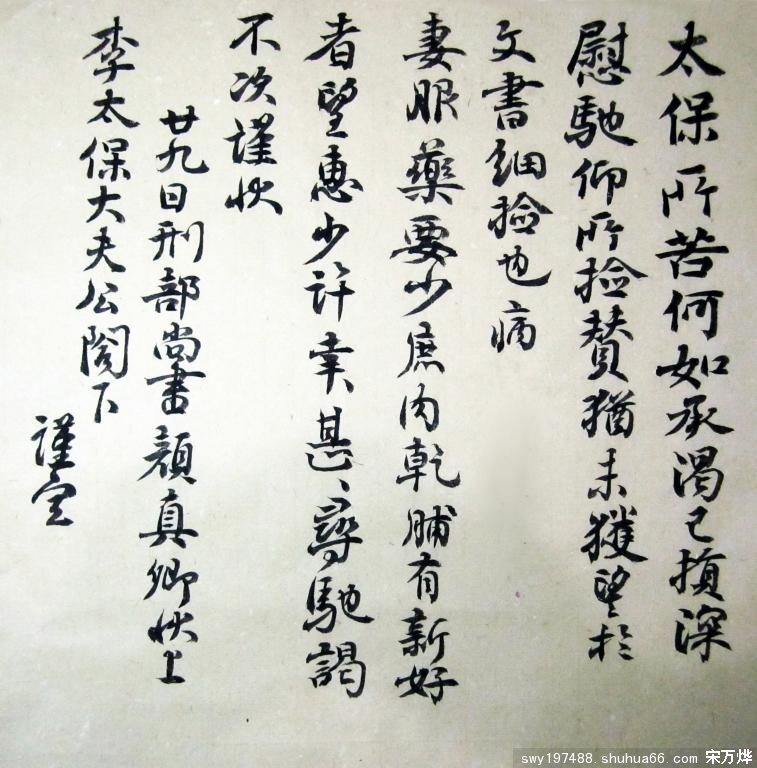 太保所苦何如承渴已損深
慰馳仰所撿贊猶未獲望於
文書細撿也病
妻服藥要少鹿肉乾脯有新好
者望惠少許幸甚、尋馳謁
不次謹狀
廿九日刑部尚書顏真卿狀上
李太保大夫公閣下
謹空
swy197488.shuhua66.com 宋万烨